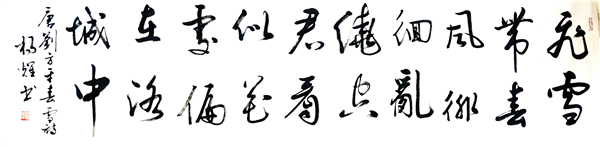 飛雪
帶春
風徘
徊亂
繞空
君看
似花
處偏
在洛
城中
唐劉方平春雪詩
楊書